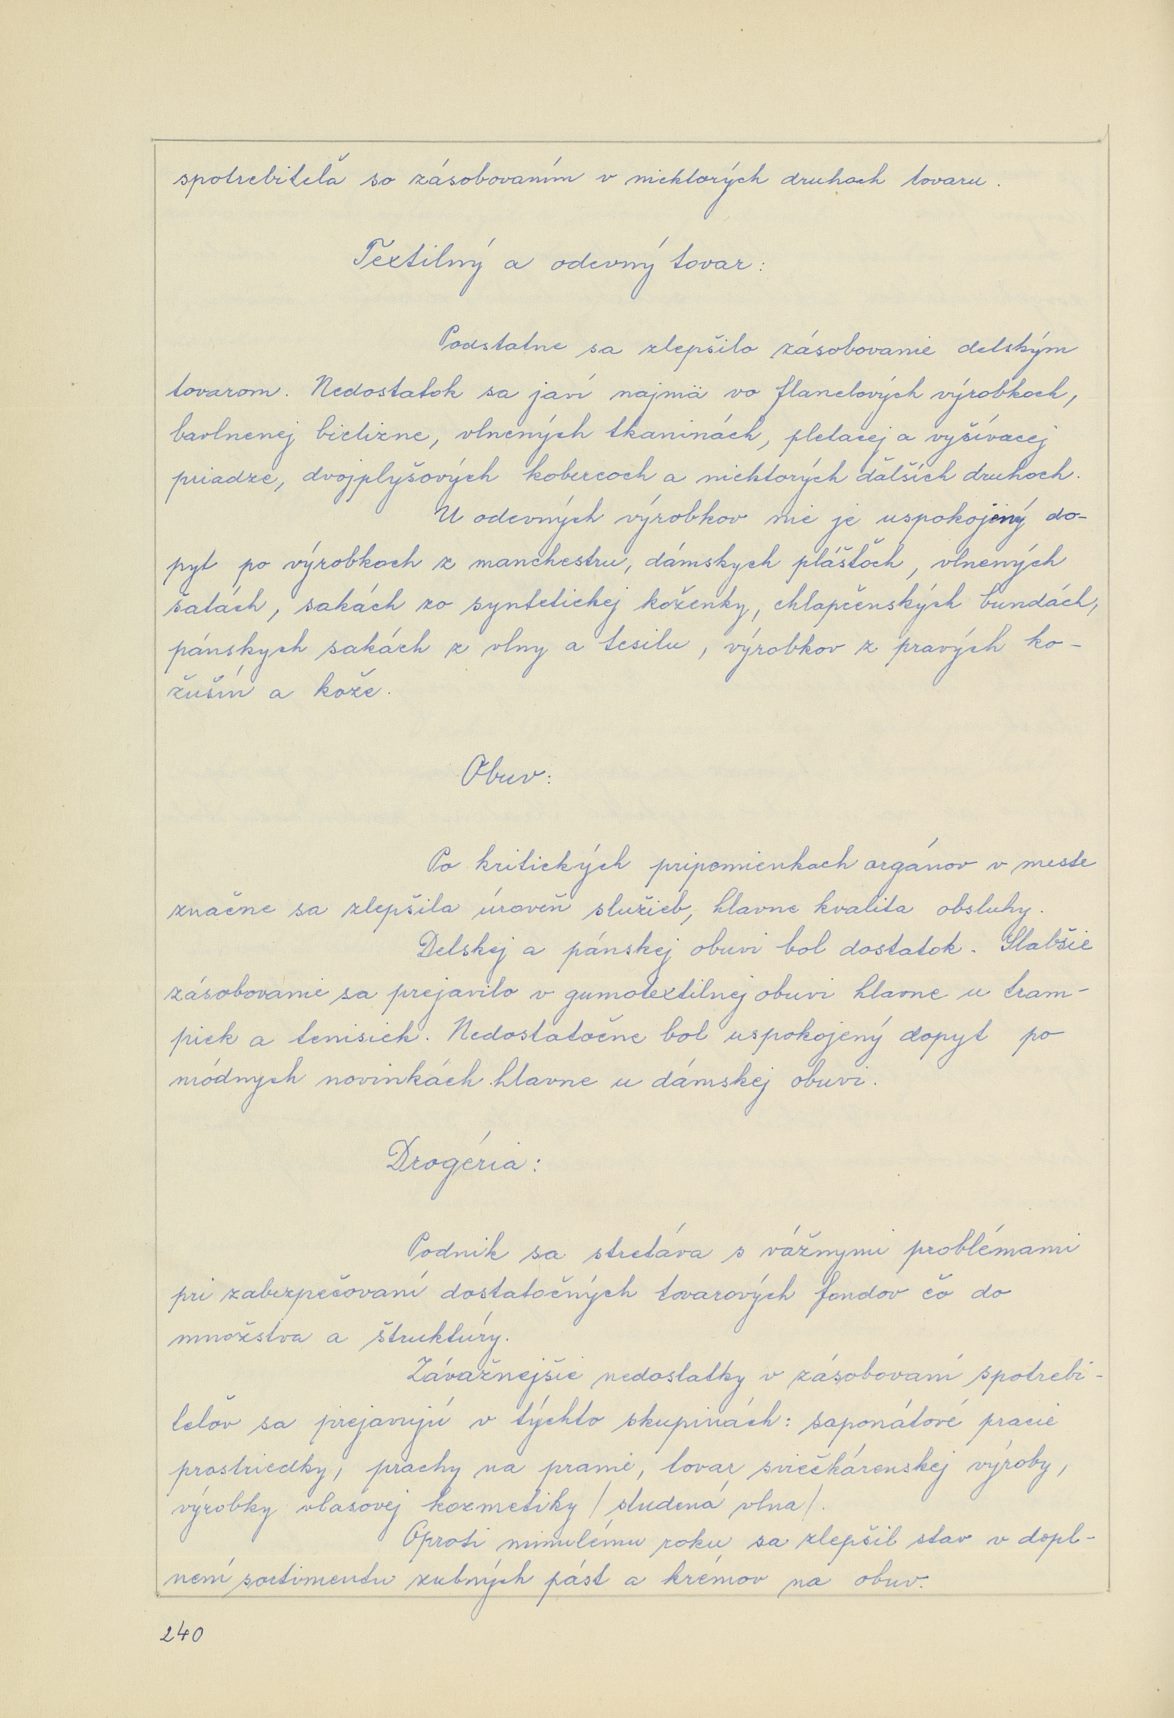 spotrebiteľa so zásobovaním v niektorých druhoch tovaru.
Textilný a odevný tovar:
Podstatne sa zlepšilo zásobovanie detským
tovarom. Nedostatok sa javí najmä vo flanelových výrobkoch,
bavlnenej bielizne, vlnených tkaninách, pletacej a vyšívacej
priadze, dvojplyšových kobercoch a niektorých ďalších druhoch.
U odevných výrobkov nie je uspokojený do-
pyt po výrobkoch z manchestru, dámskych plášťoch, vlnených
šatách, sakách zo syntetickej koženky, chlapčenských bundách,
pánskych sakách z vlny a tesilu, výrobkov z pravých ko-
žušín a kože.
Obuv:
Po kritických pripomienkach orgánov v meste
značne sa zlepšila úroveň služieb, hlavne kvalita obsluhy.
Detskej a pánskej obuvi bol dostatok. Slabšie
zásobovanie sa prejavilo v gumotextilnej obuvi hlavne u tram-
piek a tenisiek. Nedostatočne bol uspokojený dopyt po
módnych novinkách hlavne u dámskej obuvi.
Drogéria:
Podnik sa stretáva s vážnymi problémami
pri zabezpečovaní dostatočných tovarových fondov čo do
množstva a štruktúry.
Závažnejšie nedostatky v zásobovaní spotrebi-
teľov sa prejavujú v týchto skupinách: saponátové pracie
prostriedky, prachy na pranie, tovar sviečkárenskej výroby,
výrobky vlasovej kozmetiky /studená vlna/.
Oproti minulému roku sa zlepšil stav v dopl-
není sortimentu zubných pást a krémov na obuv.
240